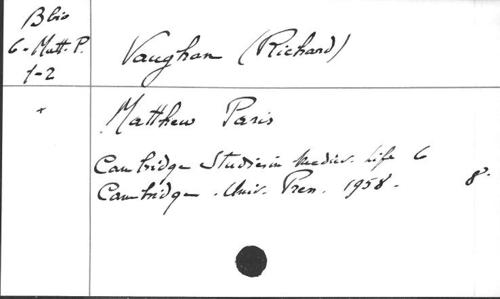 B bio
6-Matt. P.
1-2
Vaughan (Richard)
+
Matthew Paris
Cambridge Studies in mediev. life 6
Cambridge. Univ. Press. 1958.
8°